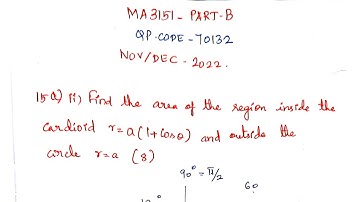 MA3151 - PART-B
QP.CODE - 70132
NOV/DEC - 2022.
15a) ii) Find the area of the region inside the
cardioid r=a(1+cosθ) and outside the
circle r=a (8)
90° = π/2
60